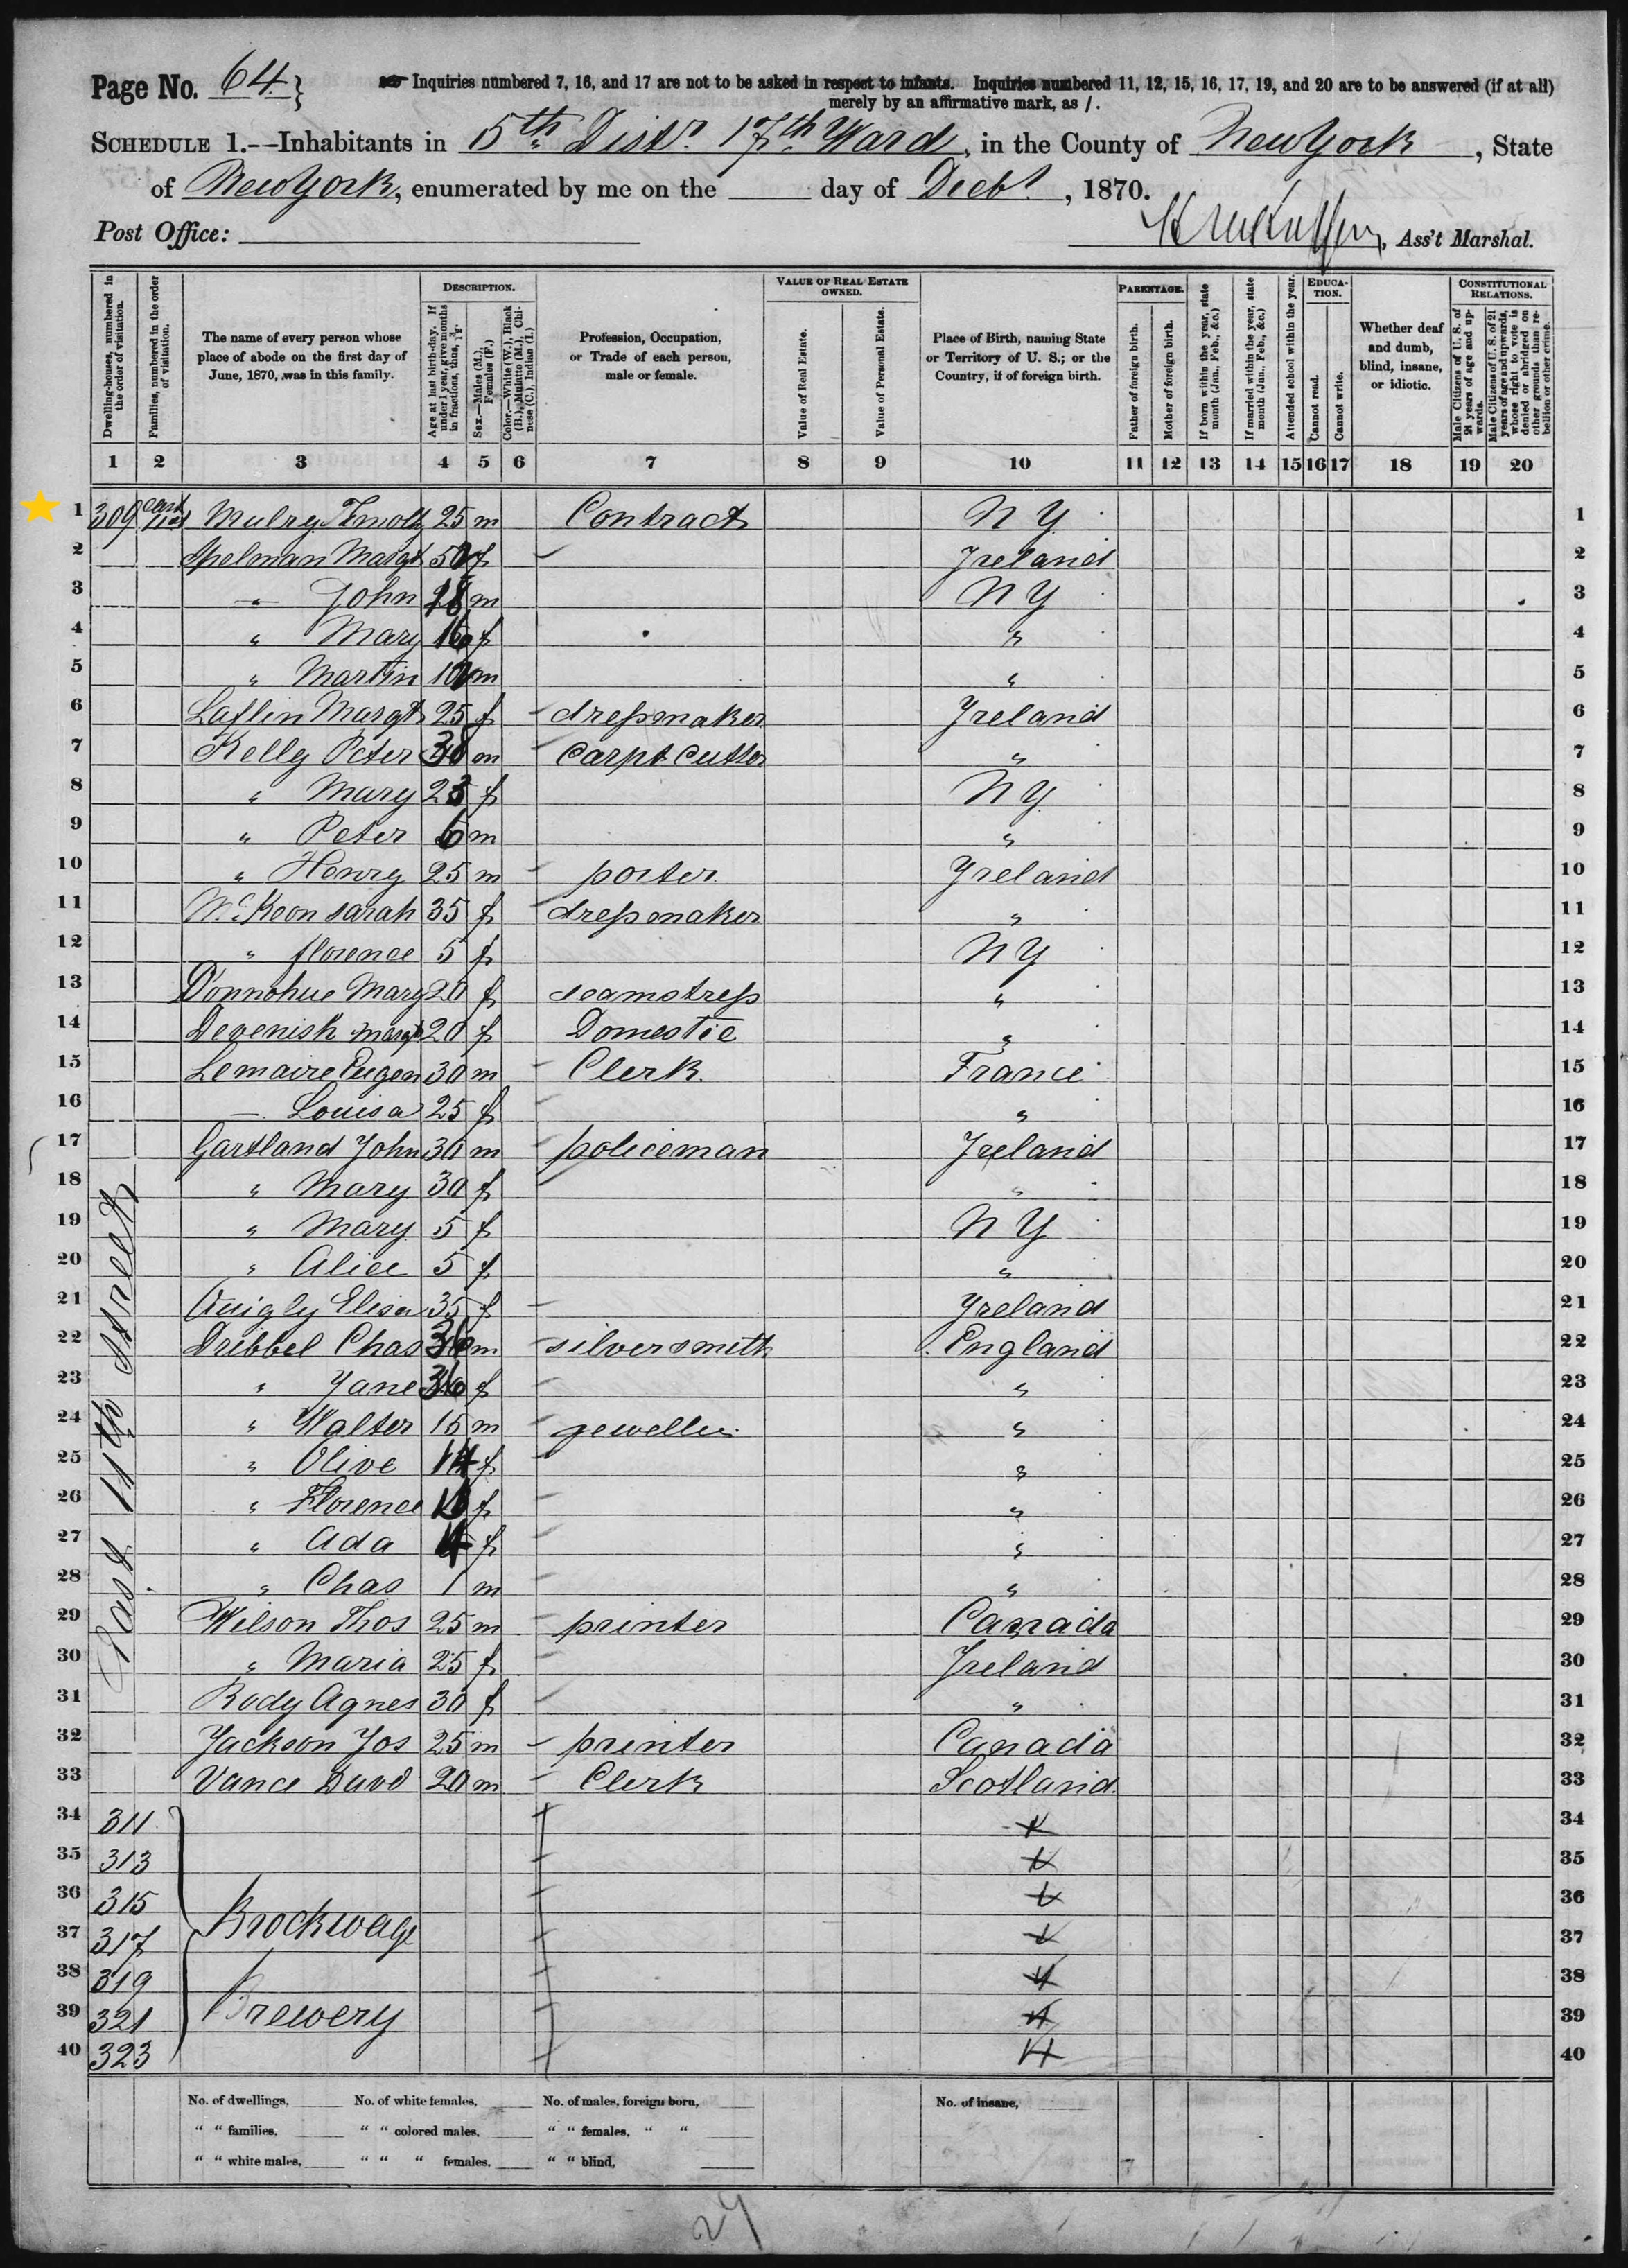 Page No. 64 } Inquiries numbered 7, 16, and 17 are not to be asked in respect to infants. Inquiries numbered 11, 12, 15, 16, 17, 19, and 20 are to be answered (if at all)
merely by an affirmative mark, as /.
SCHEDULE 1.—Inhabitants in 5th Distr. 17th Ward, in the County of New York, State
of New York, enumerated by me on the ____ day of Decbr, 1870.
Post Office: ____ , Ass't Marshal.
Dwelling-houses, numbered in the order of visitation.
Families, numbered in the order of visitation.
The name of every person whose place of abode on the first day of June, 1870, was in this family.
DESCRIPTION.
Age at last birth-day. If under 1 year, give months in fractions, thus, 3/12.
Sex.—Males (M.), Females (F.)
Color.—White (W.), Black (B.), Mulatto (M.), Chinese (C.), Indian (I.)
Profession, Occupation, or Trade of each person, male or female.
VALUE OF REAL ESTATE OWNED.
Value of Real Estate.
Value of Personal Estate.
Place of Birth, naming State or Territory of U. S.; or the Country, if of foreign birth.
PARENTAGE.
Father of foreign birth.
Mother of foreign birth.
If born within the year, state month (Jan., Feb., &c.)
If married within the year, state month (Jan., Feb., &c.)
Attended school within the year.
EDUCATION.
Cannot read.
Cannot write.
Whether deaf and dumb, blind, insane, or idiotic.
CONSTITUTIONAL RELATIONS.
Male Citizens of U. S. of 21 years of age and upwards.
Male Citizens of U. S. of 21 years of age and upwards, whose right to vote is denied or abridged on other grounds than rebellion or other crime.
1 2 3 4 5 6 7 8 9 10 11 12 13 14 15 16 17 18 19 20
1 309 east 11st Mulry Timoty 25 m Contract N Y 1
2 Spelman Margt 50 f Ireland 2
3 — John 18 m N Y 3
4 " Mary 16 f " 4
5 " Martin 10 m " 5
6 Laflin Margt 25 f dressmaker Ireland 6
7 Kelly Peter 38 m Carpt Cutter " 7
8 " Mary 23 f N Y 8
9 " Peter 6 m " 9
10 " Henry 25 m porter Ireland 10
11 McKeon Sarah 35 f dressmaker " 11
12 " florence 5 f N Y 12
13 Donnohue Mary 20 f seamstress " 13
14 Devenish Margt 20 f Domestic " 14
15 Lemaire Eugen 30 m Clerk France 15
16 — Louisa 25 f " 16
17 Gartland John 30 m policeman Ireland 17
18 " Mary 30 f " 18
19 " Mary 5 f N Y 19
20 " Alice 5 f " 20
21 Quigly Elisa 35 f Ireland 21
22 Dribbel Chas 36 m silversmith England 22
23 " Jane 36 f " 23
24 " Walter 15 m jeweller " 24
25 " Olive 14 f " 25
26 " Florence f " 26
27 " Ada 4 f " 27
28 " Chas 1 m " 28
29 Wilson Thos 25 m printer Canada 29
30 " Maria 25 f Ireland 30
31 Rody Agnes 30 f " 31
32 Jackson Jos 25 m printer Canada 32
33 Vance Davd 20 m Clerk Scotland 33
East 11th Street
34 311 34
35 313 35
36 315 36
37 317 Brockway 37
38 319 38
39 321 Brewery 39
40 323 40
No. of dwellings, No. of white females, No. of males, foreign born, No. of insane,
" " families, " " colored males, " " females, " "
" " white males, " " " females, " " blind,